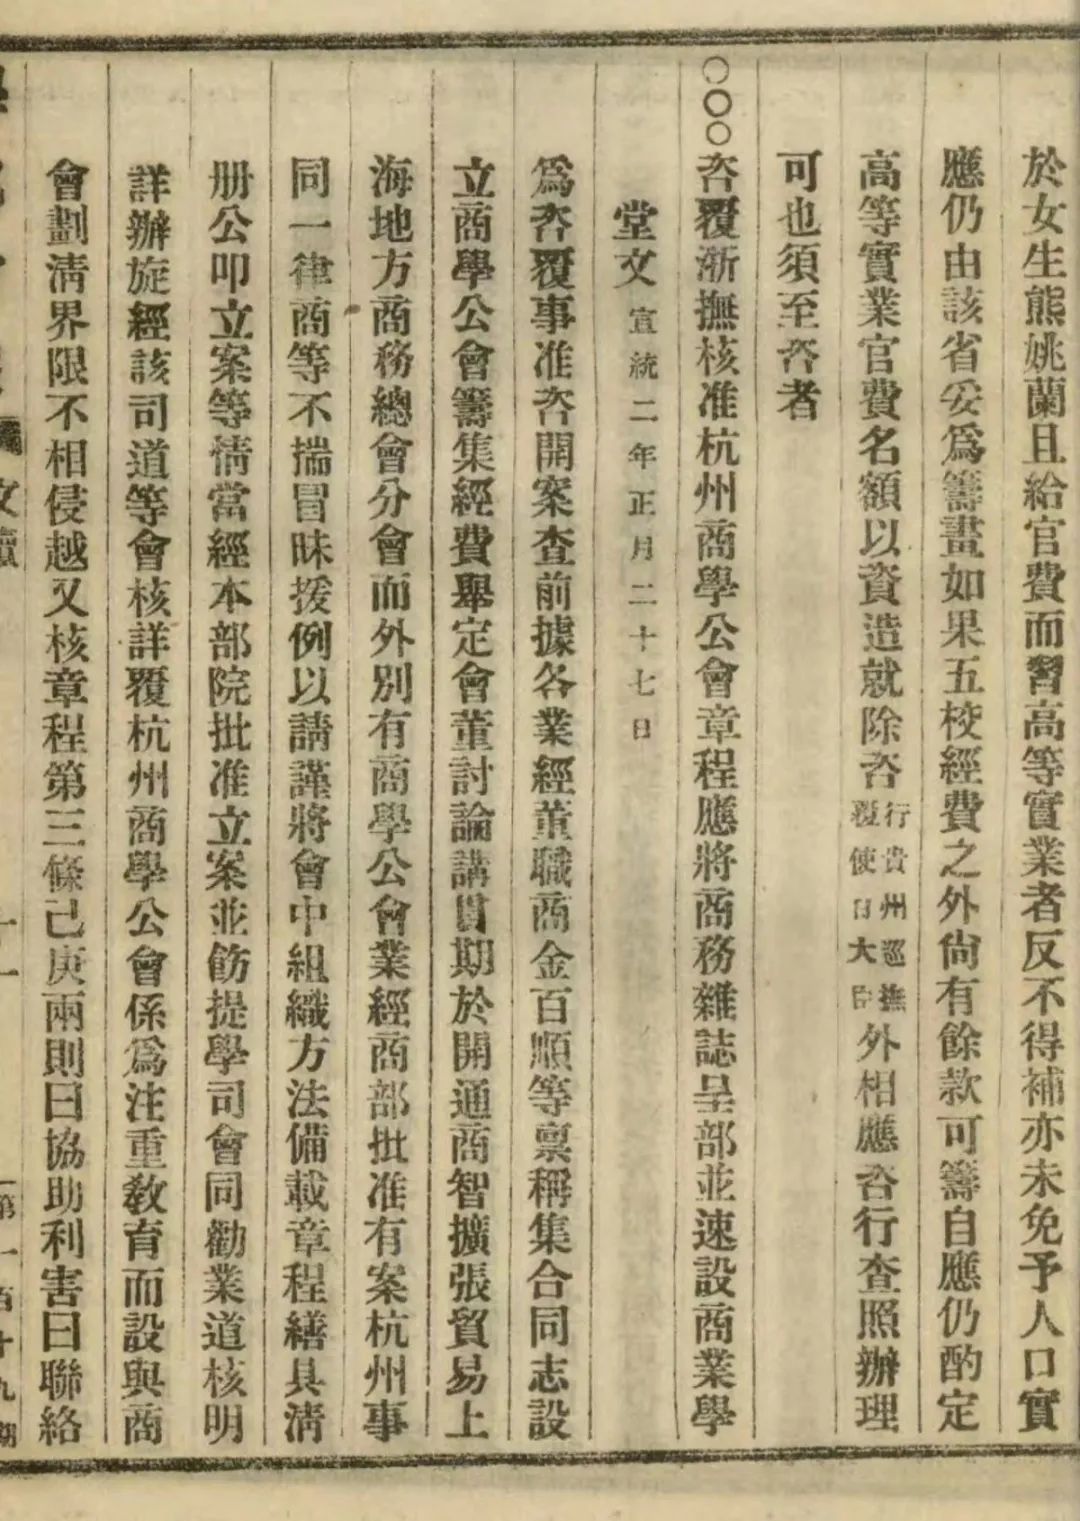 於女生熊姚蘭且給官費而習高等實業者反不得補亦未免予人口實
應仍由該省妥爲籌畫如果五校經費之外尙有餘款可籌自應仍酌定
高等實業官費名額以資造就除咨行貴州巡撫覆使日大臣外相應咨行查照辦理
可也須至咨者
○○○咨覆浙撫核准杭州商學公會章程應將商務雜誌呈部並速設商業學
堂文 宣統二年正月二十七日
爲咨覆事准咨開案查前據各業經董職商金百順等禀稱集合同志設
立商學公會籌集經費舉定會董討論講貫期於開通商智擴張貿易上
海地方商務總會分會而外別有商學公會業經商部批准有案杭州事
同一律商等不揣冒昧援例以請謹將會中組織方法備載章程繕具淸
册公叩立案等情當經本部院批准立案並飭提學司會同勸業道核明
詳辦旋經該司道等會核詳覆杭州商學公會係爲注重敎育而設與商
會劃淸界限不相侵越又核章程第三條己庚兩則曰協助利害曰聯絡
文牘 十一 第一百十九期